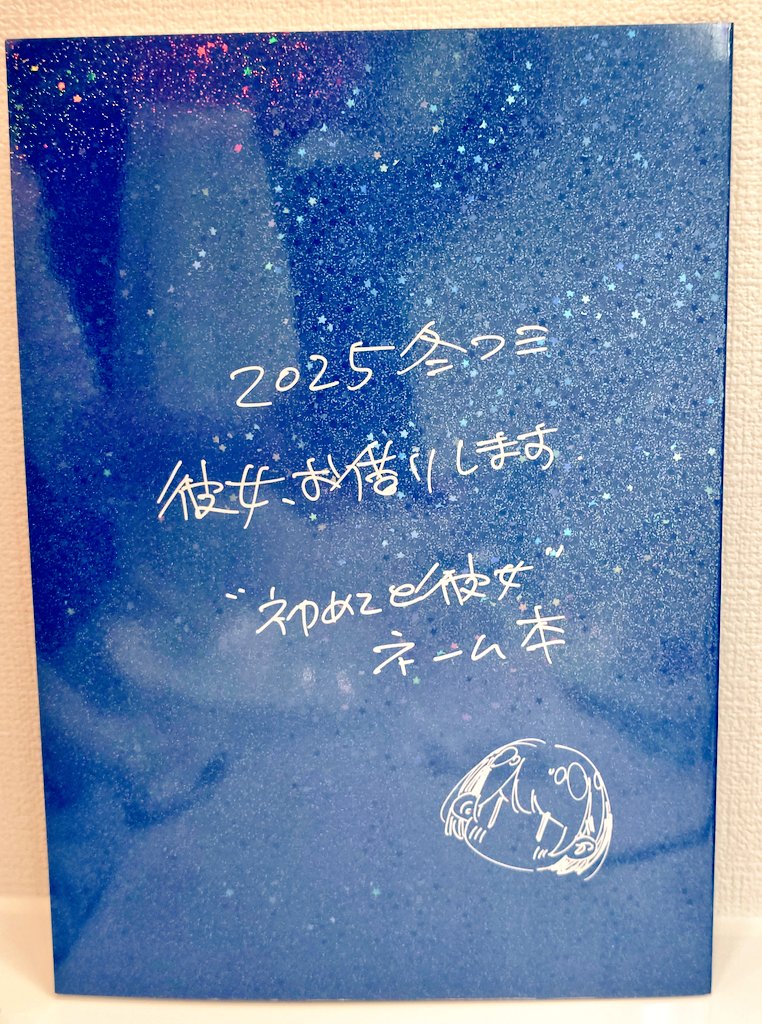 2025冬コミ
彼女、お借りします
"初めてと彼女"
ネーム本